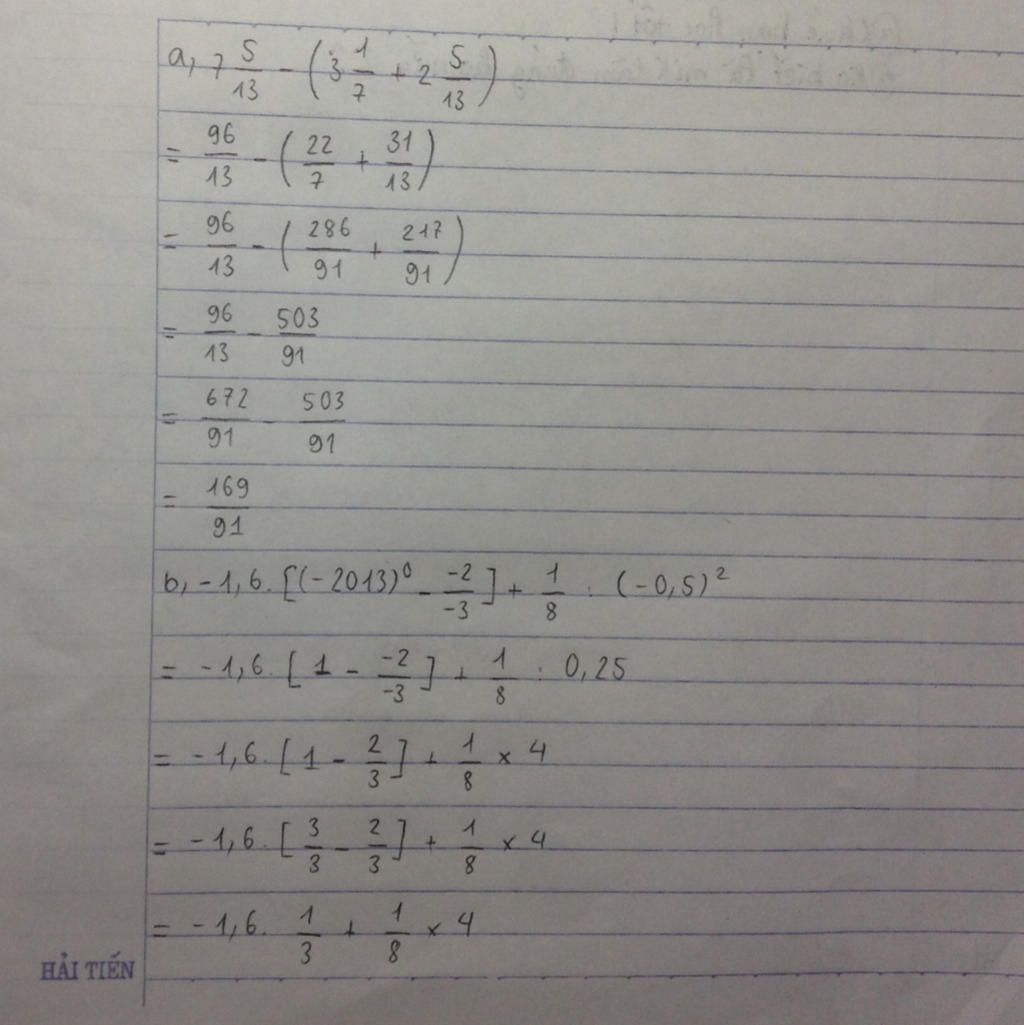 a, 7 5/13 - (3 1/7 + 2 5/13)
= 96/13 - (22/7 + 31/13)
= 96/13 - (286/91 + 217/91)
= 96/13 - 503/91
= 672/91 - 503/91
= 169/91
b, -1,6. [(-2013)⁰ - -2/-3] + 1/8 : (-0,5)²
= -1,6. [1 - -2/-3] + 1/8 : 0,25
= -1,6. [1 - 2/3] + 1/8 × 4
= -1,6. [3/3 - 2/3] + 1/8 × 4
= -1,6. 1/3 + 1/8 × 4
HẢI TIẾN